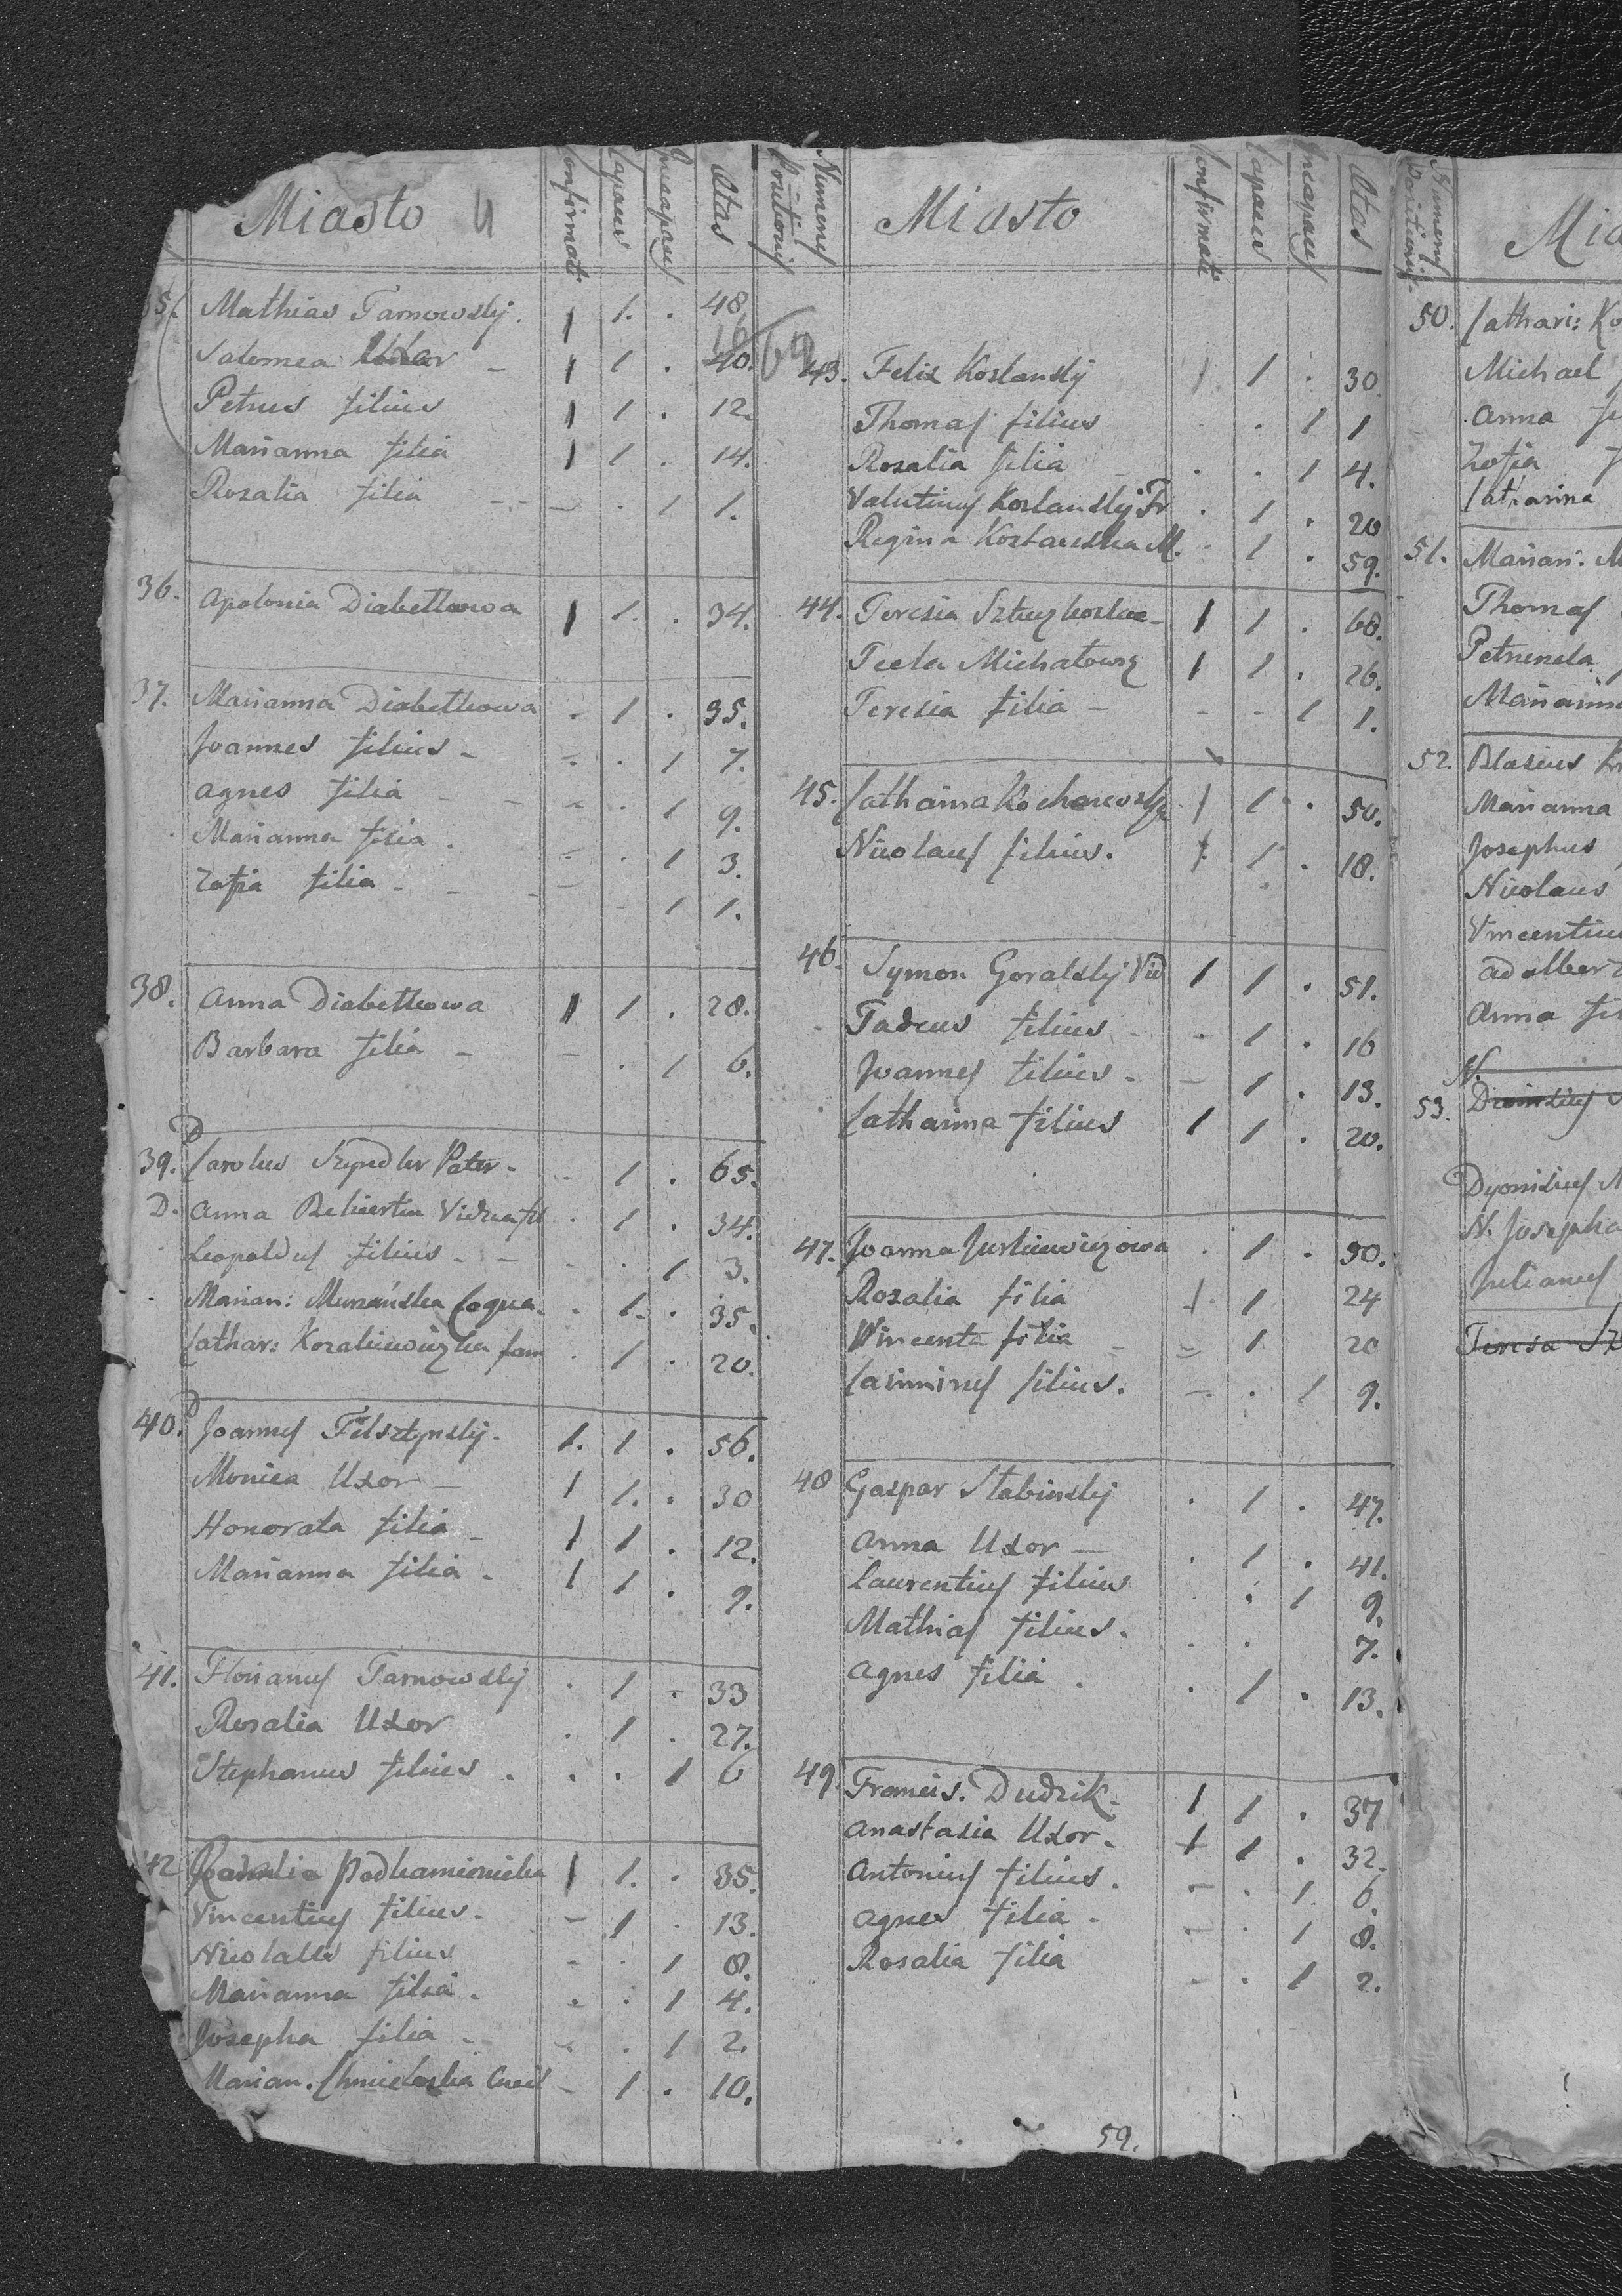 Miasto 4 Confirmati Capaces Incapaces Etas
35. Mathias Tarnowskij. 1 1. . 48
Salomea Uxor - 1 1 . 40.
Petrus filius 1 1 . 12.
Marianna filia 1 1 . 14.
Rozalia filia - - . 1 1.
36. Apolonia Diabelkowa 1 1. . 34.
37. Marianna Diabelkowa - 1 . 35.
Joannes filius - - . 1 7.
Agnes filia - - . 1 9.
Marianna filia . - . 1 3.
Zofia filia - - - 1 1.
38. Anna Diabelkowa 1 1 . 28.
Barbara filia - - . 1 6.
D
39. Carolus Szyndler Pater - . 1 . 65.
D. Anna Vidua fil . 1 . 34.
Leopoldus filius - - . . 1 3.
Marian: Murańska Coqua. . 1. . 35.
Cathar: Kozakiewiczka fam . 1 . 20.
D
40. Joannes Filsztynskij. 1. 1 . 56.
Monica Uxor - 1 1. . 30
Honorata filia - 1 1 . 12.
Marianna filia - 1 1 . 9.
41. Florianus Tarnowskij . 1 - 33
Rosalia Uxor . 1 . 27.
Stephanus filius . . . 1 6
42 Podkamienicka 1 1. . 35.
Vincentius filius - - 1 . 13.
Nicolaus filius - . 1 8.
Marianna filia . - . 1 4.
Josepha filia - - . 1 2.
Marian. - 1 . 10.
Numerus Positionis Miasto Confirmati Capaces Incapaces Etas
16 69
43. Felix Koslanskij 1 1 . 30
Thomas filius . . 1 1
Rozalia filia - . . 1 4.
Valentinus Koslanskij Fr . 1 . 20
Regina M. . 1 . 59.
44. Teresia 1 1 . 68.
Tecla Michałowz 1 1 . 26.
Teresia filia - - - 1 1.
45. Catharina 1 1 . 50.
Nicolaus filius. 1 1 . 18.
46. Symon Goralskij Vid 1 1 . 51.
Tadeus filius - - 1 . 16
Joannes filius - - 1 . 13.
Catharina filius 1 1 . 20.
47. Joanna Jurkiewiczowa . 1 . 50.
Rozalia filia 1 1 24
Vincenta filia - - 1 20
Casimirus filius. - . 1 9.
48 Gaspar Stabinskij . 1 . 47.
Anna Uxor - . 1 . 41.
Laurentius filius . . 1 9.
Mathias filius . . . 7.
Agnes filia . . 1 . 13.
49. Francis. Dudzik - 1 1 . 37
Anastasia Uxor. 1 1 . 32.
Antonius filius . - . 1 6.
Agnes filia . - . 1 8.
Rosalia filia - . 1 2.
59.
Numerus Positionis Mia
50. Cathari: Ko
Michael
Anna
Zofia
Catharina
51. Marian: M
Thomas
Petronela
Marianna
52. Blasius
Marianna
Josephus
Nicolaus
Vincentius
Adalbert
Anna fil
N.
53.
Dyonisius
N. Josepha
Julianus
Teresa